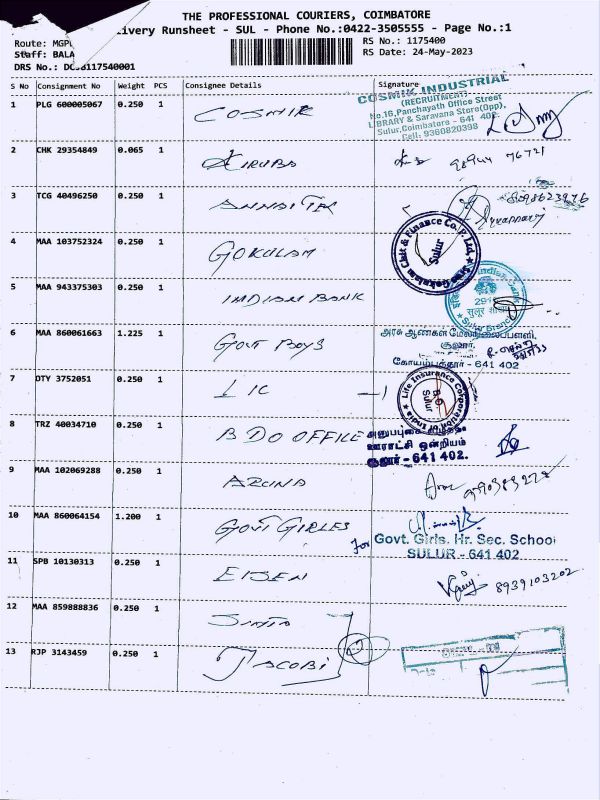 THE PROFESSIONAL COURIERS, COIMBATORE
livery Runsheet - SUL - Phone No.:0422-3505555 - Page No.:1
Route: MGP
RS No.: 1175400
Staff: BALA
RS Date: 24-May-2023
DRS No.:
S No Consignment No Weight PCS Consignee Details Signature
1 PLG 600005067 0.250 1 COSMIK
COSMIK INDUSTRIAL
(RECRUITMENT)
No.16,Panchayath Office Street
LIBRARY & Saravana Store(Opp),
Sulur,Coimbatore - 641 402.
Cell: 9360820398
2 CHK 29354849 0.065 1 KIRUBA
76721
3 TCG 40496250 0.250 1
4 MAA 103752324 0.250 1 GOKULAM
Sree Gokulam Chit & Finance Co. P. Ltd.
Sulur
5 MAA 943375303 0.250 1 INDIAN BANK
Indian Bank
सुलूर शाखा
Sulur Branch
6 MAA 860061663 1.225 1 GOVT BOYS
அரசு ஆண்கள் மேல்நிலைப்பள்ளி,
சூலூர்,
கோயம்புத்தூர் - 641 402
7 DTY 3752051 0.250 1 LIC
Life Insurance Corporation of India
B.O
Sulur
8 TRZ 40034710 0.250 1 BDO OFFICE
ஊராட்சி ஒன்றியம்
சூலூர் - 641 402.
9 MAA 102069288 0.250 1 ARUNA
10 MAA 860064154 1.200 1 GOVT GIRLES
For Govt. Girls. Hr. Sec. School
SULUR - 641 402
11 SPB 10130313 0.250 1 EISEN
8939103202
12 MAA 859888836 0.250 1
13 RJP 3143459 0.250 1 JACOBI